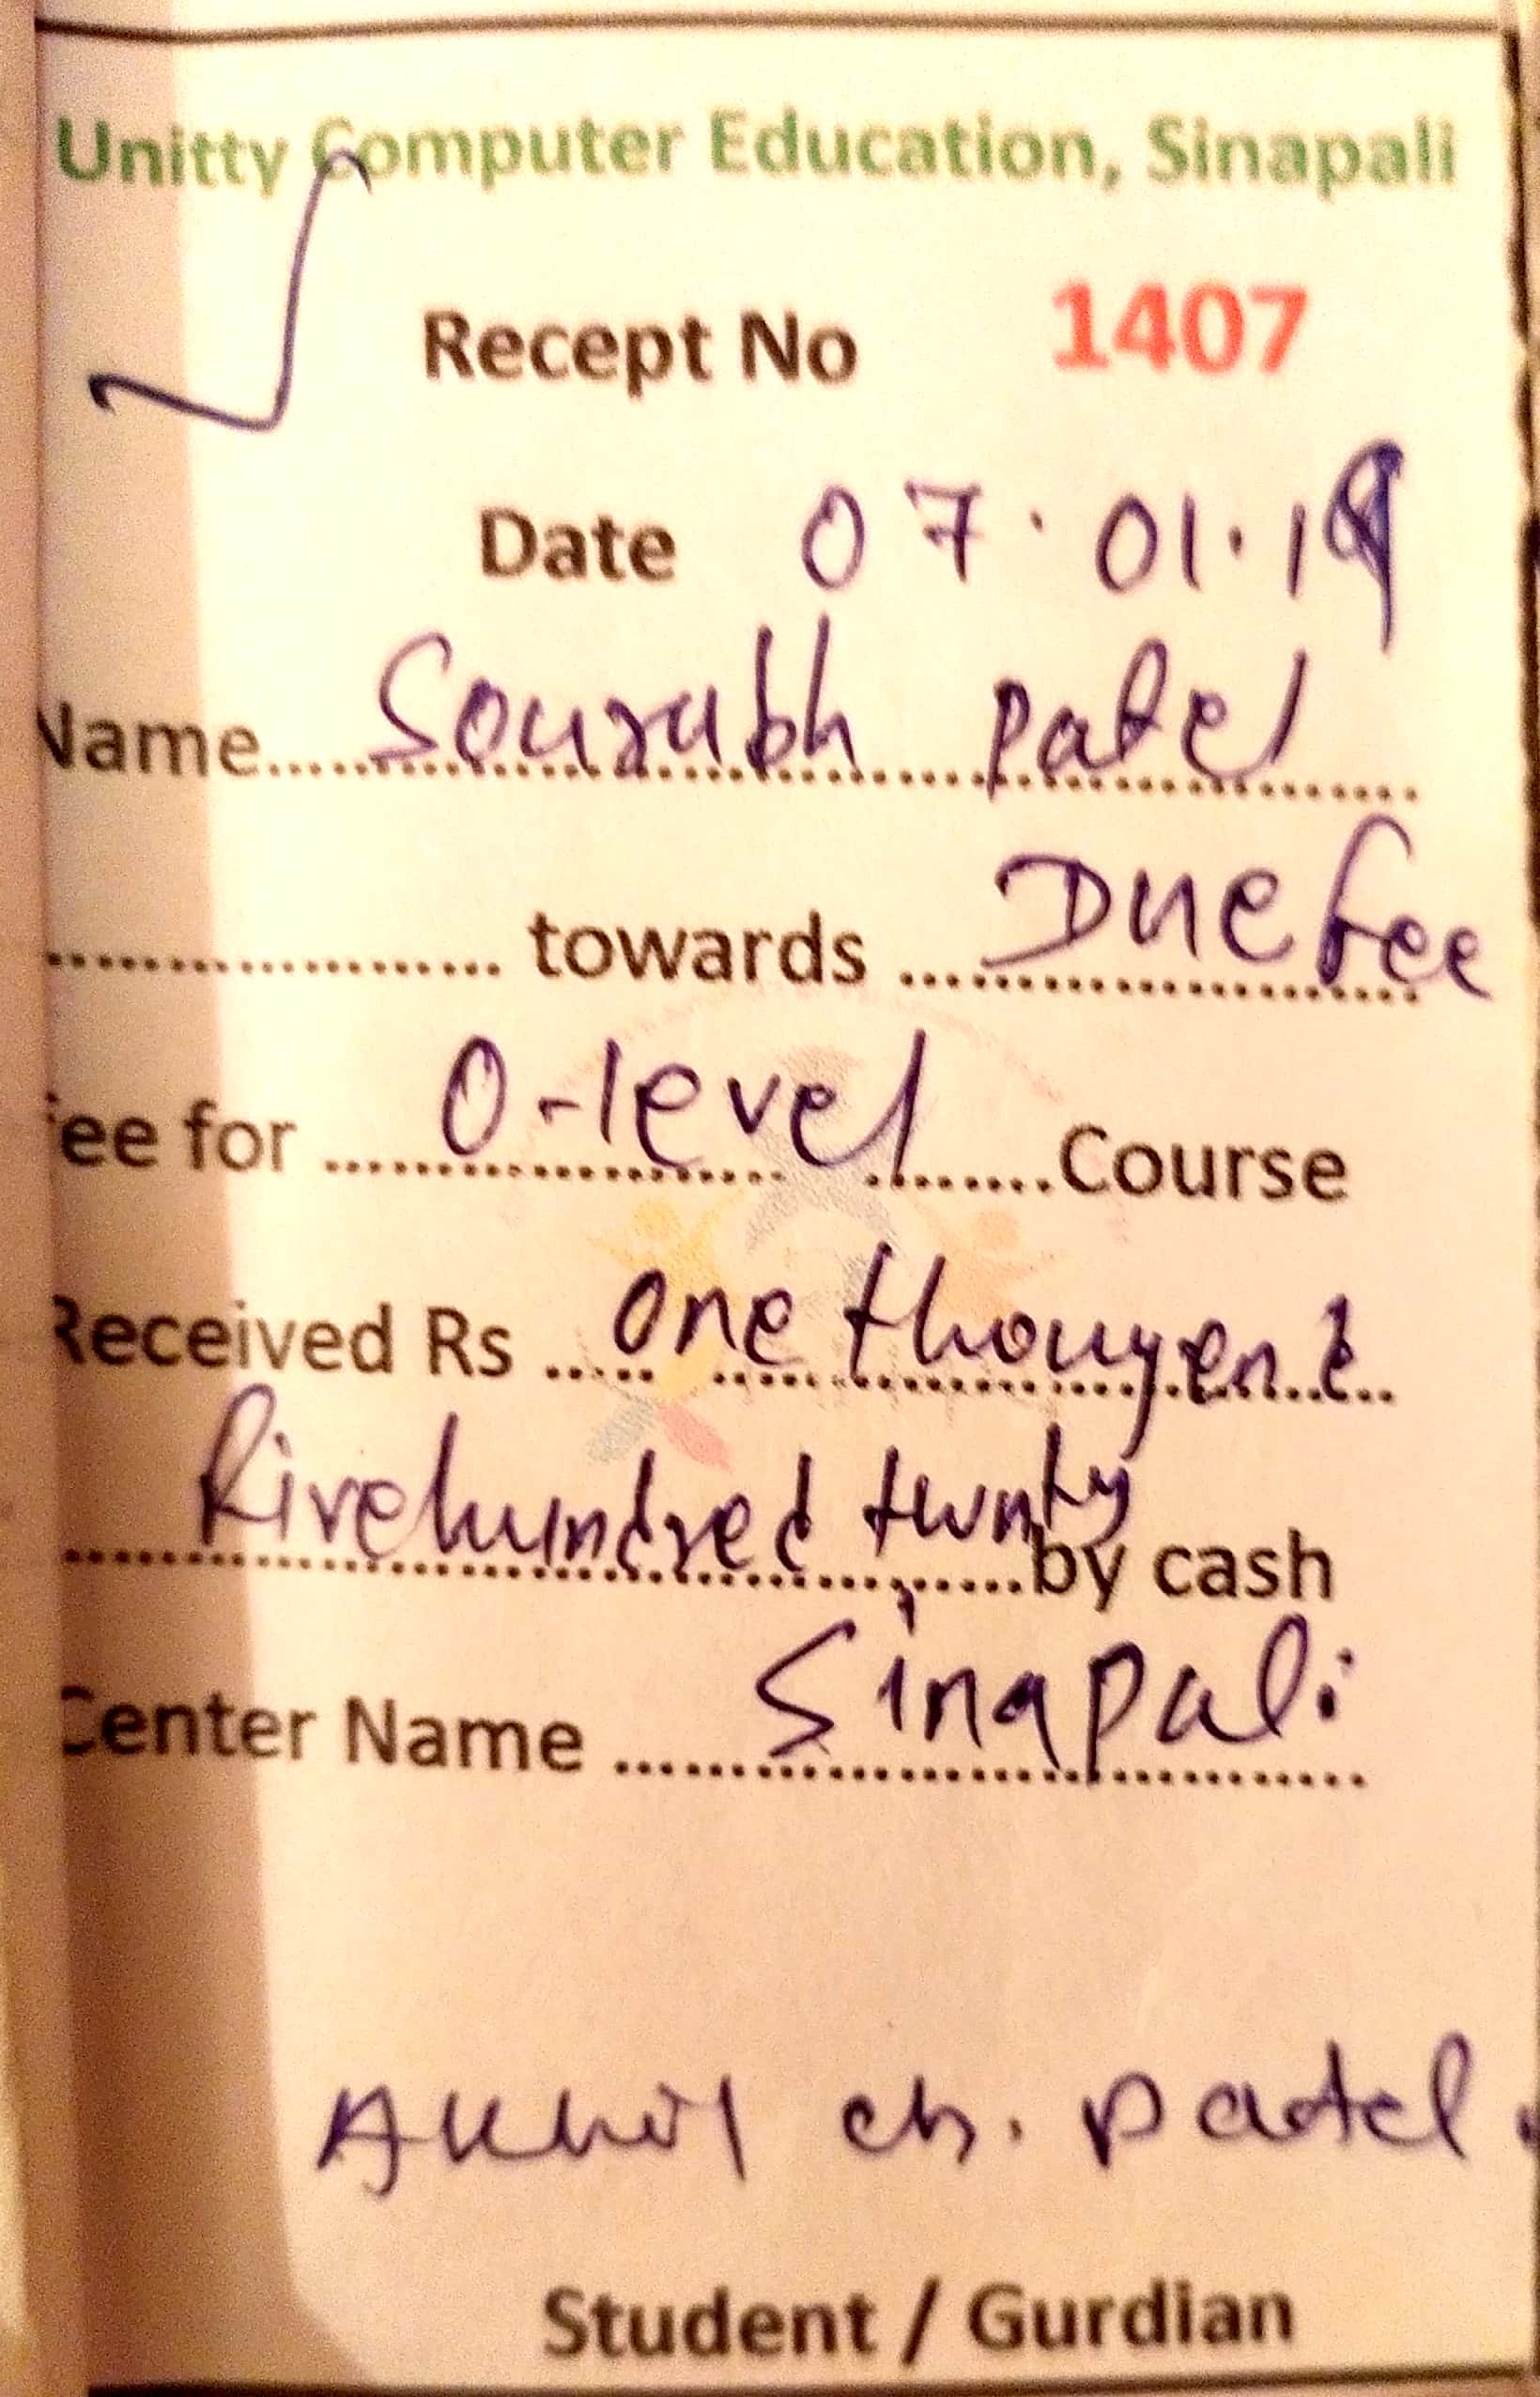 Unitty Computer Education, Sinapali
Recept No 1407
Date 07.01.19
Name..... Sourubh patel
.................... towards ..... Due fee
fee for ..... O-level ........Course
Received Rs ..... one thougent
Fivehundred twnty by cash
Center Name ..... Sinapali
Akhil ch. patel.
Student / Gurdian